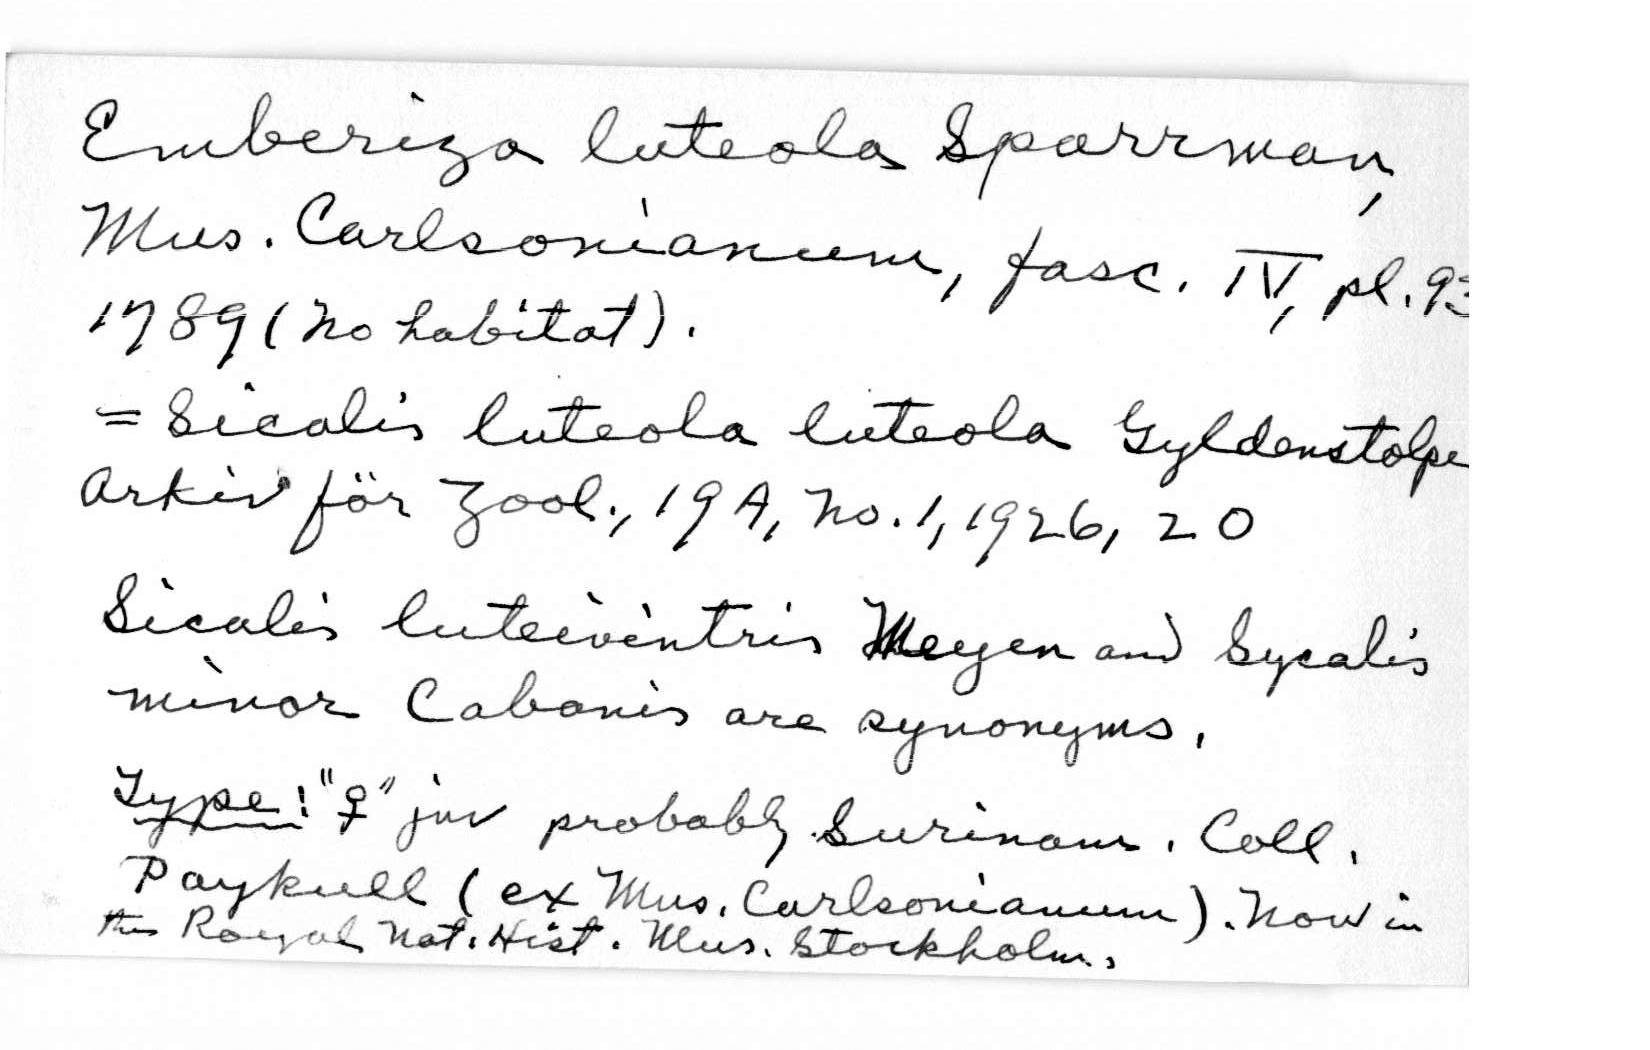 Emberiza luteola Sparrman,
Mus. Carlsonianum, fasc. IV, pl. 93
1789 (No habitat).
= Sicalis luteola luteola Gyldenstolpe
Arkiv för Zool., 19 A, No. 1, 1926, 20
Sicalis luteiventris Meyen and Sycalis
minor Cabanis are synonyms.
Type! "♀" juv probably Surinam. Coll.
Paykull (ex Mus. Carlsonianum). Now in
the Royal Nat. Hist. Mus. Stockholm.